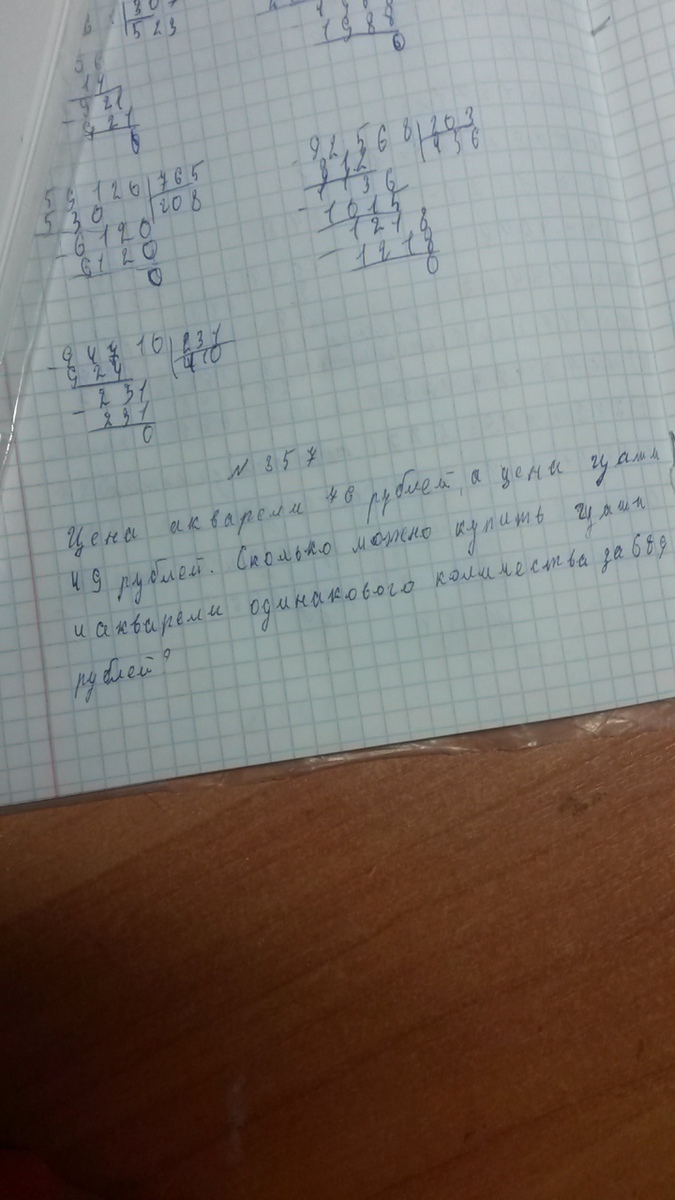 307
523
1988
0
14
921
- 921
0
59126 765
530 208
- 6120
6120
0
- 92568 203
812 456
1136
- 1015
1218
- 1218
0
- 94710 231
924 410
- 231
231
0
N 357
Цена акварели 76 рублей, а цены гуаши
49 рублей. Сколько можно купить гуаши
и акварели одинакового количества за 689
рублей?